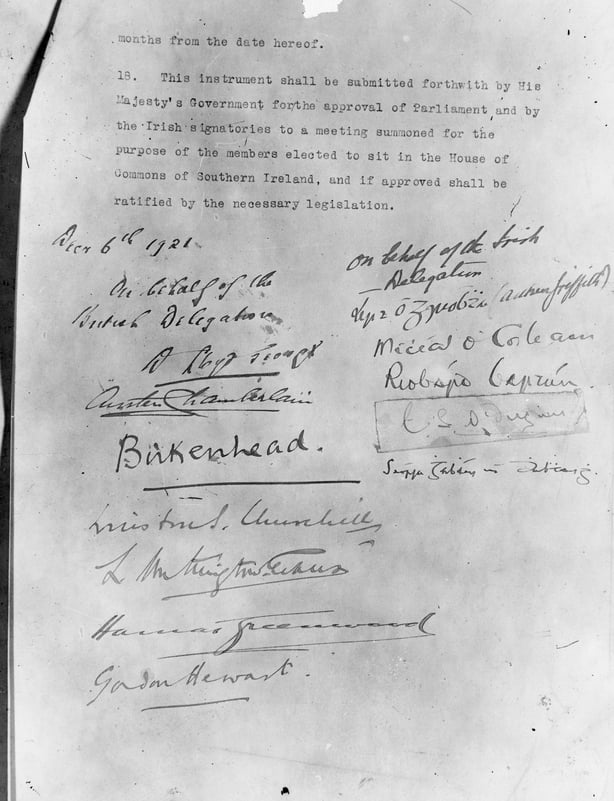 months from the date hereof.
18. This instrument shall be submitted forthwith by His
Majesty's Government for the approval of Parliament and by
the Irish signatories to a meeting summoned for the
purpose of the members elected to sit in the House of
Commons of Southern Ireland, and if approved shall be
ratified by the necessary legislation.
Decr 6th 1921
On behalf of the
British Delegation
D Lloyd George
Austen Chamberlain
Birkenhead.
Winston S. Churchill
L Worthington-Evans
Hamar Greenwood
Gordon Hewart.
On behalf of the Irish
Delegation
(Arthur Griffith)
Mícéal Ó Coileáin
Riobárd Bartún
E. S. Ó Dugáin